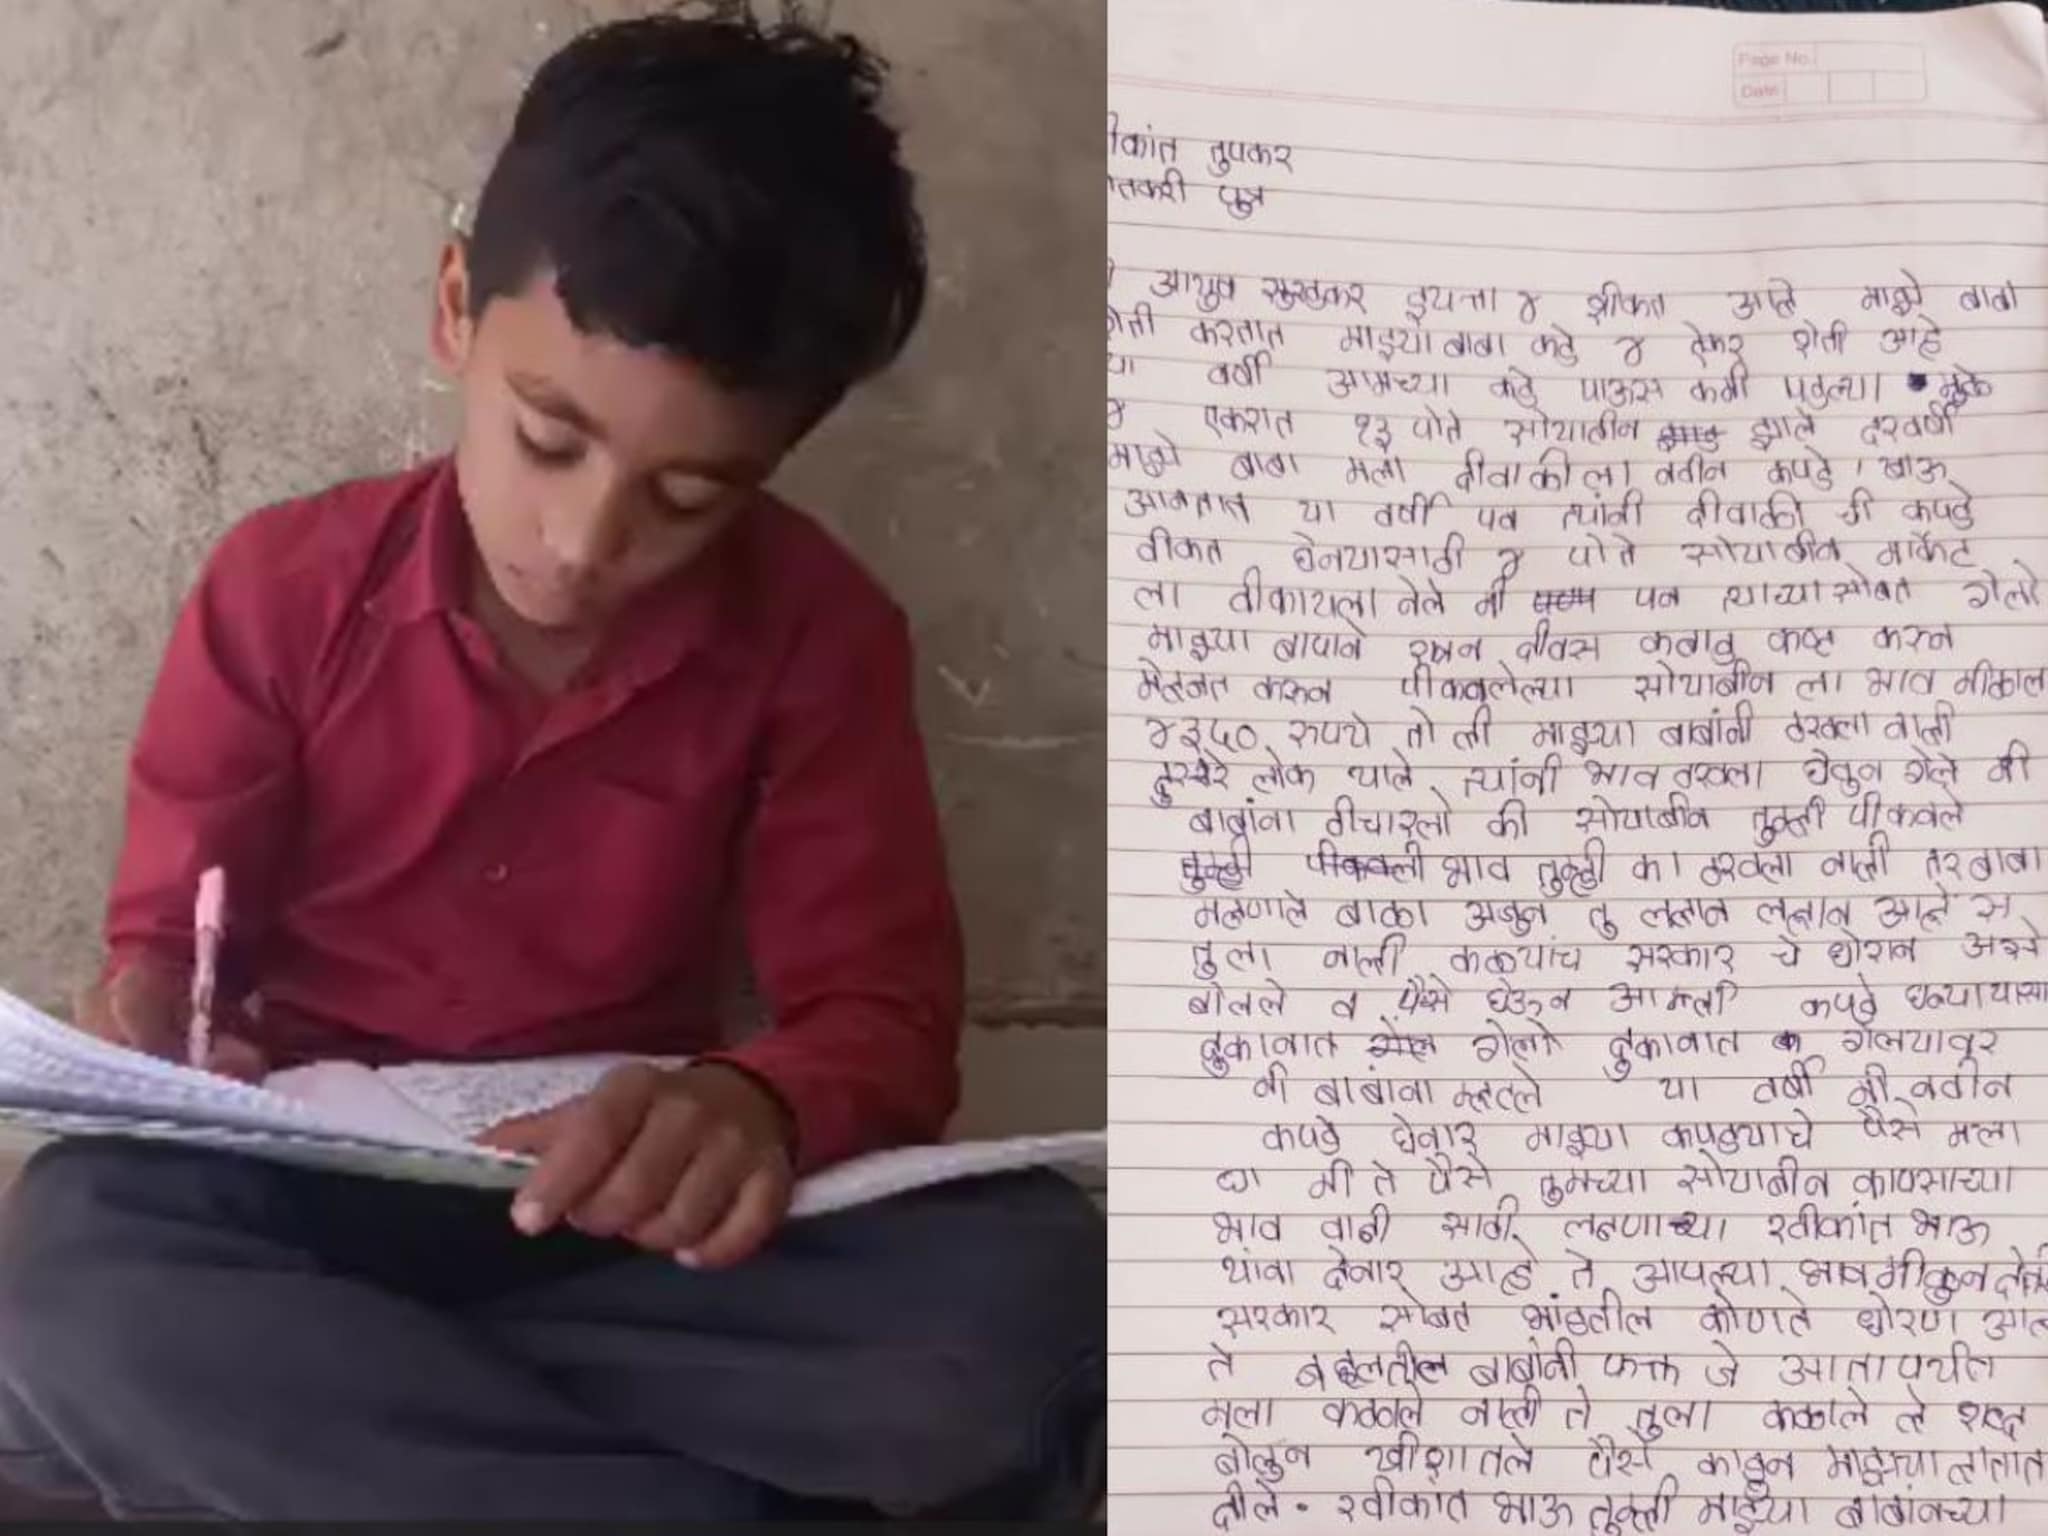 Page No.
Date
ीकांत तुपकर
ेतकरी पुत्र
आयुष सुरडकर इयत्ता ४ शीकत आहे माझे बाबा
ेती करतात माझ्या बाबा कडे ४ ऐकर शेती आहे
या वर्षी आमच्या कडे पाऊस कमी पडल्या मुळे
४ एकरात १३ पोते सोयाबीन झाले दरवर्षी
माझे बाबा मला दीवाळीला नवीन कपडे । खाऊ
आनतात या वर्षी पन त्यांनी दीवाळी ची कपडे
वीकत घेनयासाठी ४ पोते सोयाबीन मार्केट
ला वीकायला नेले मी पन त्याच्या सोबत गेलो
माझ्या बापाने रात्रन दीवस कबाड कष्ट करुन
मेहनत करुन पीकवलेल्या सोयाबीन ला भाव मीळाल
४३५० रुपये तो ही माझ्या बाबांनी ठरवला नाही
दुसरे लोक याले त्यांनी भाव ठरवला घेवुन गेले मी
बाबांना वीचारलो की सोयाबीन तुम्ही पीकवले
तुम्ही पीकवली भाव तुम्ही का ठरवला नाही तर बाबा
म्हणाले बाळा अजुन तु लहान लहान आहे स
तुला नाही कळयाच सरकार चे धोरान असे
बोलले व पैसे घेऊन आम्ही कपडे घेन्यायासा
दुकानात गेलो दुकानात गेलयावर
मी बाबांना म्हटले या वर्षी मी नवीन
कपडे घेनार माझ्या कपडयाचे पैसे मला
द्या मी ते पैसे तुमच्या सोयाबीन कापसाच्या
भाव वाढी साठी लढणाऱ्या रवीकांत भाऊ
यांना देनार आहे ते आपल्या भाव मीळुन देती
सरकार सोबत भांडतील कोणते धोरण आह
ते बदलतील बाबांनी फक्त जे आतापर्यंत
मला कळले नाही ते तुला कळाले ते शब्द
बोलुन खीशातले पैसे काढुन माझ्या हातात
दीले. रवीकांत भाऊ तुम्ही माझ्या बाबांनच्या